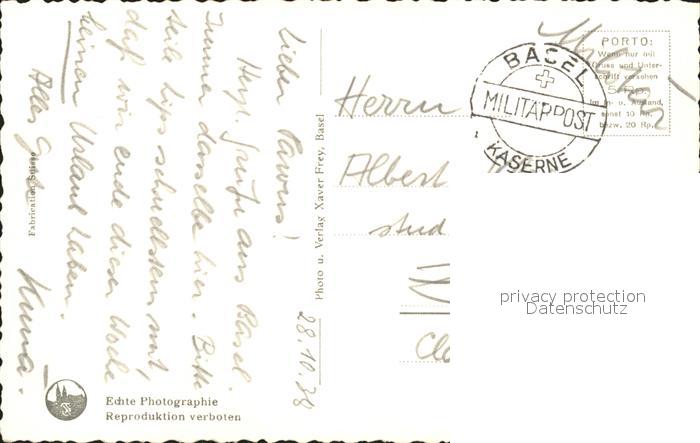 Lieber Pawens!
Herzl. Grüsse aus Basel.
Immer dasselbe hier. Bitte
teile Lips schnellstens mit,
daß wir ende dieser Woche
keinen Urlaub haben.
Alles Gute
28.10.39
Photo u. Verlag Xaver Frey, Basel
Fabrication Suisse
Echte Photographie
Reproduktion verboten
Herrn
Albert
stud
BASEL
MILITÄRPOST
KASERNE
PORTO:
Wenn nur mit
Gruss und Unter-
schrift versehen
5 Rp.
Im In- o. Ausland,
sonst 10 Rp.
bezw. 20 Rp.
privacy protection
Datenschutz